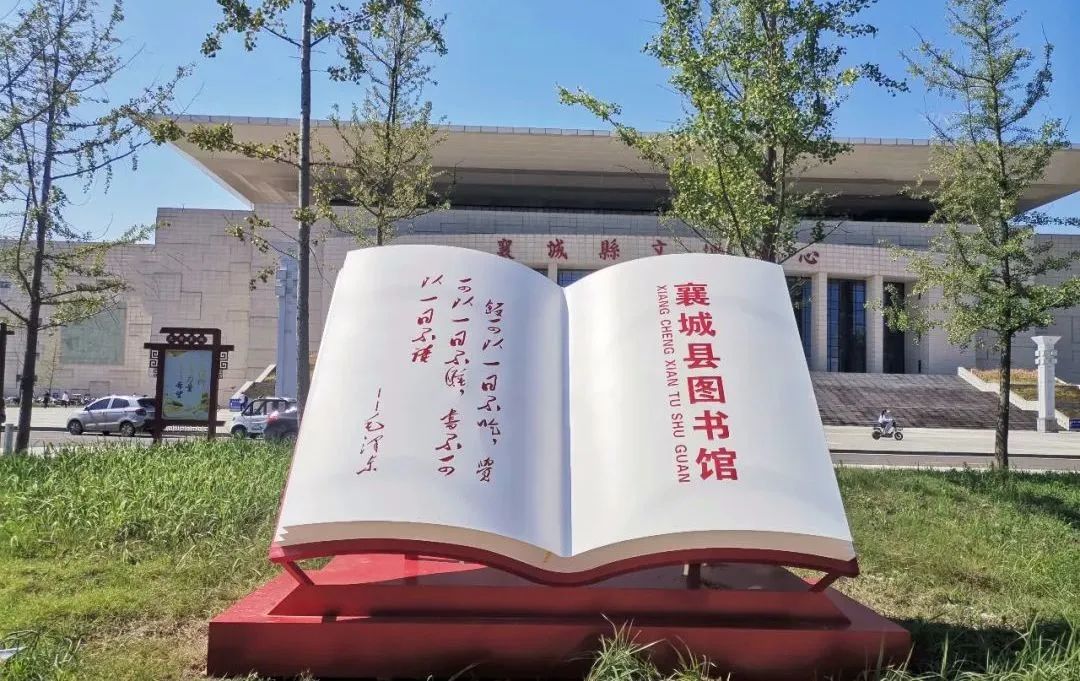 襄城縣文
心
飯可以一日不吃,覺
可以一日不睡,書不可
以一日不讀
——毛澤東
襄城县图书馆
XIANG CHENG XIAN TU SHU GUAN